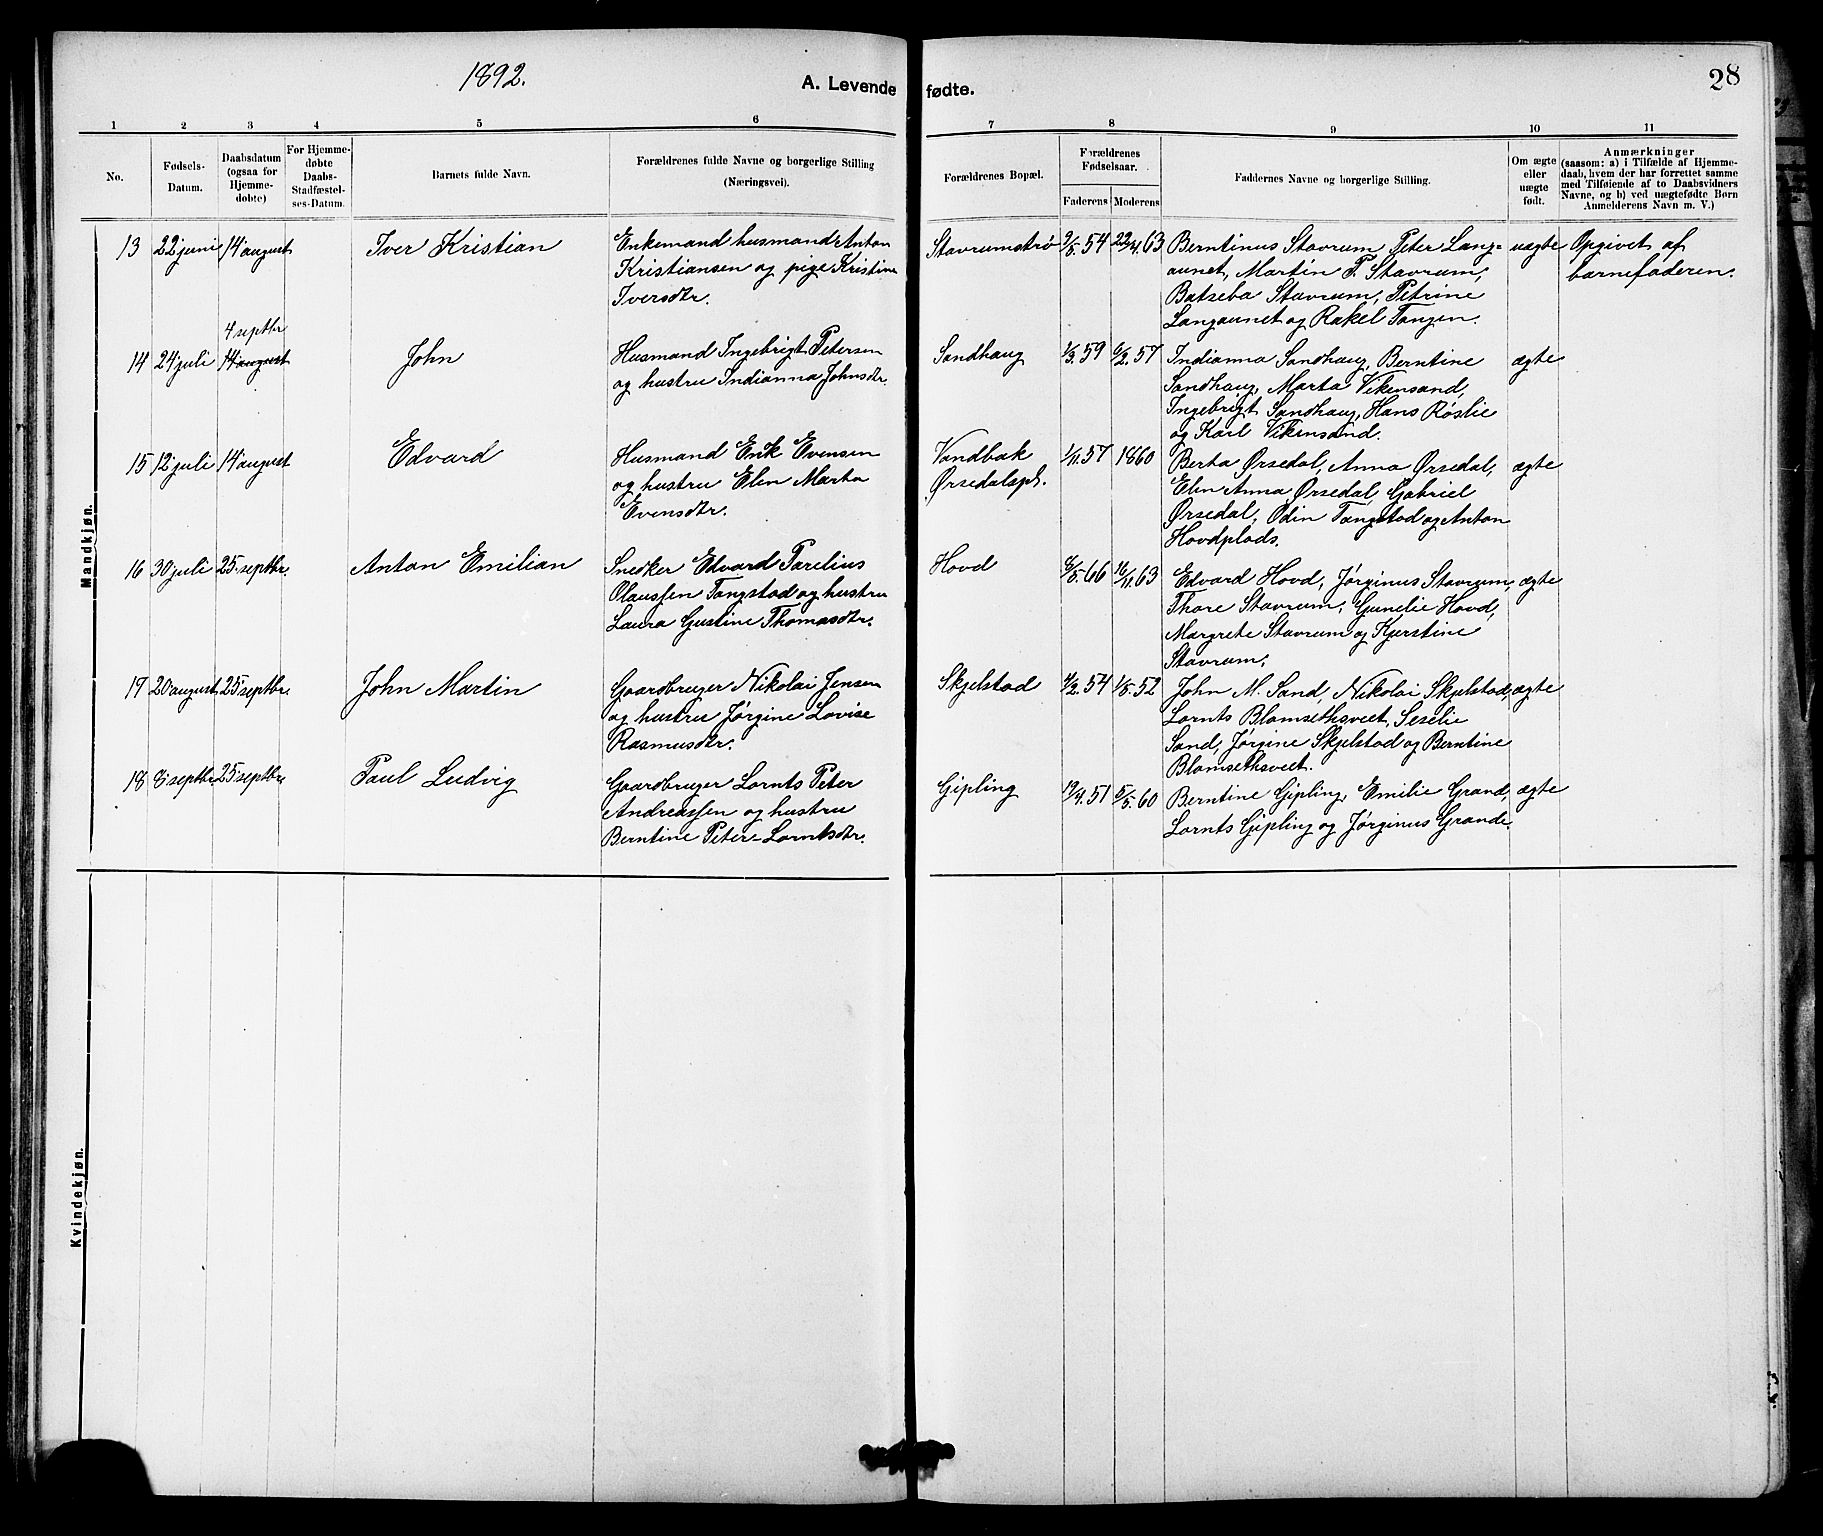 1892.
A. Levende fødte.
28
1 2 3 4 5 6 7 8 9 10 11
No.
Fødsels-
Datum.
Daabsdatum
(ogsaa for
Hjemme-
døbte)
For Hjemme-
døbte
Daabs-
Stadfæstel-
ses-Datum.
Barnets fulde Navn.
Forældrenes fulde Navne og borgerlige Stilling
(Næringsvei).
Forældrenes Bopæl.
Forældrenes
Fødselsaar.
Faderens Moderens
Faddernes Navne og borgerlige Stilling.
Om ægte
eller
uægte
født.
Anmærkninger
(saasom: a) i Tilfælde af Hjemme-
daab, hvem der har forrettet samme
med Tilføiende af to Daabsvidners
Navne, og b) ved uægtefødte Børn
Anmelderens Navn m. V.)
Mandkjøn.
13 22 juni 14 august Iver Kristian
Enkemand husmand Anton
Kristiansen og pige Kristine
Iversdtr.
Stavrumstrø 9/8.54 22/4.63
Berntinus Stavrum Peter Lang-
aunet, Martin P. Stavrum,
Batseba Stavrum, Petrine
Langaunet og Rakel Tangen.
uægte
Opgivet af
barnefaderen.
4 septbr
14 24 juli 14 august John
Husmand Ingebrigt Petersen
og hustru Indianna Johnsdtr.
Sandhaug 1/3.59 6/2.57
Indianna Sandhaug, Berntine
Sandhaug, Marta Vikensand,
Ingebrigt Sandhaug, Hans Røslie
og Karl Vikensand.
ægte
15 12 juli 14 august Edvard
Husmand Erik Evensen
og hustru Elen Marta
Evensdtr.
Vandbak
Ørsedalspl.
1/11.57 1860
Berta Ørsedal, Anna Ørsedal,
Elen Anna Ørsedal, Gabriel
Ørsedal, Odin Tangstad og Anton
Hovdplads.
ægte
16 30 juli 25 septbr. Anton Emilian
Snedker Edvard Parelius
Olaussen Tangstad og hustru
Laura Gustine Thomasdtr.
Hovd 6/5.66 16/11.63
Edvard Hovd, Jørginus Stavrum,
Thore Stavrum, Gunelie Hovd,
Margrete Stavrum og Kjerstine
Stavrum,
ægte
17 20 august 25 septbr. John Martin
Gaardbruger Nikolai Jensen
og hustru Jørgine Lovise
Rasmusdtr.
Skjelstad 4/2.54 1/8.52
John M. Sand, Nikolai Skjelstad,
Lornts Blomsethsveet, Seselie
Sand, Jørgine Skjelstad og Berntine
Blomsethsveet.
ægte
18 8 septbr. 25 septbr. Paul Ludvig
Gaardbruger Lornts Peter
Andreassen og hustru
Berntine Peter-Lorntsdtr.
Gipling 19/4.51 5/5.60
Berntine Gipling, Emilie Grand,
Lornts Gipling og Jørginus Grande.
ægte
Kvindekjøn.